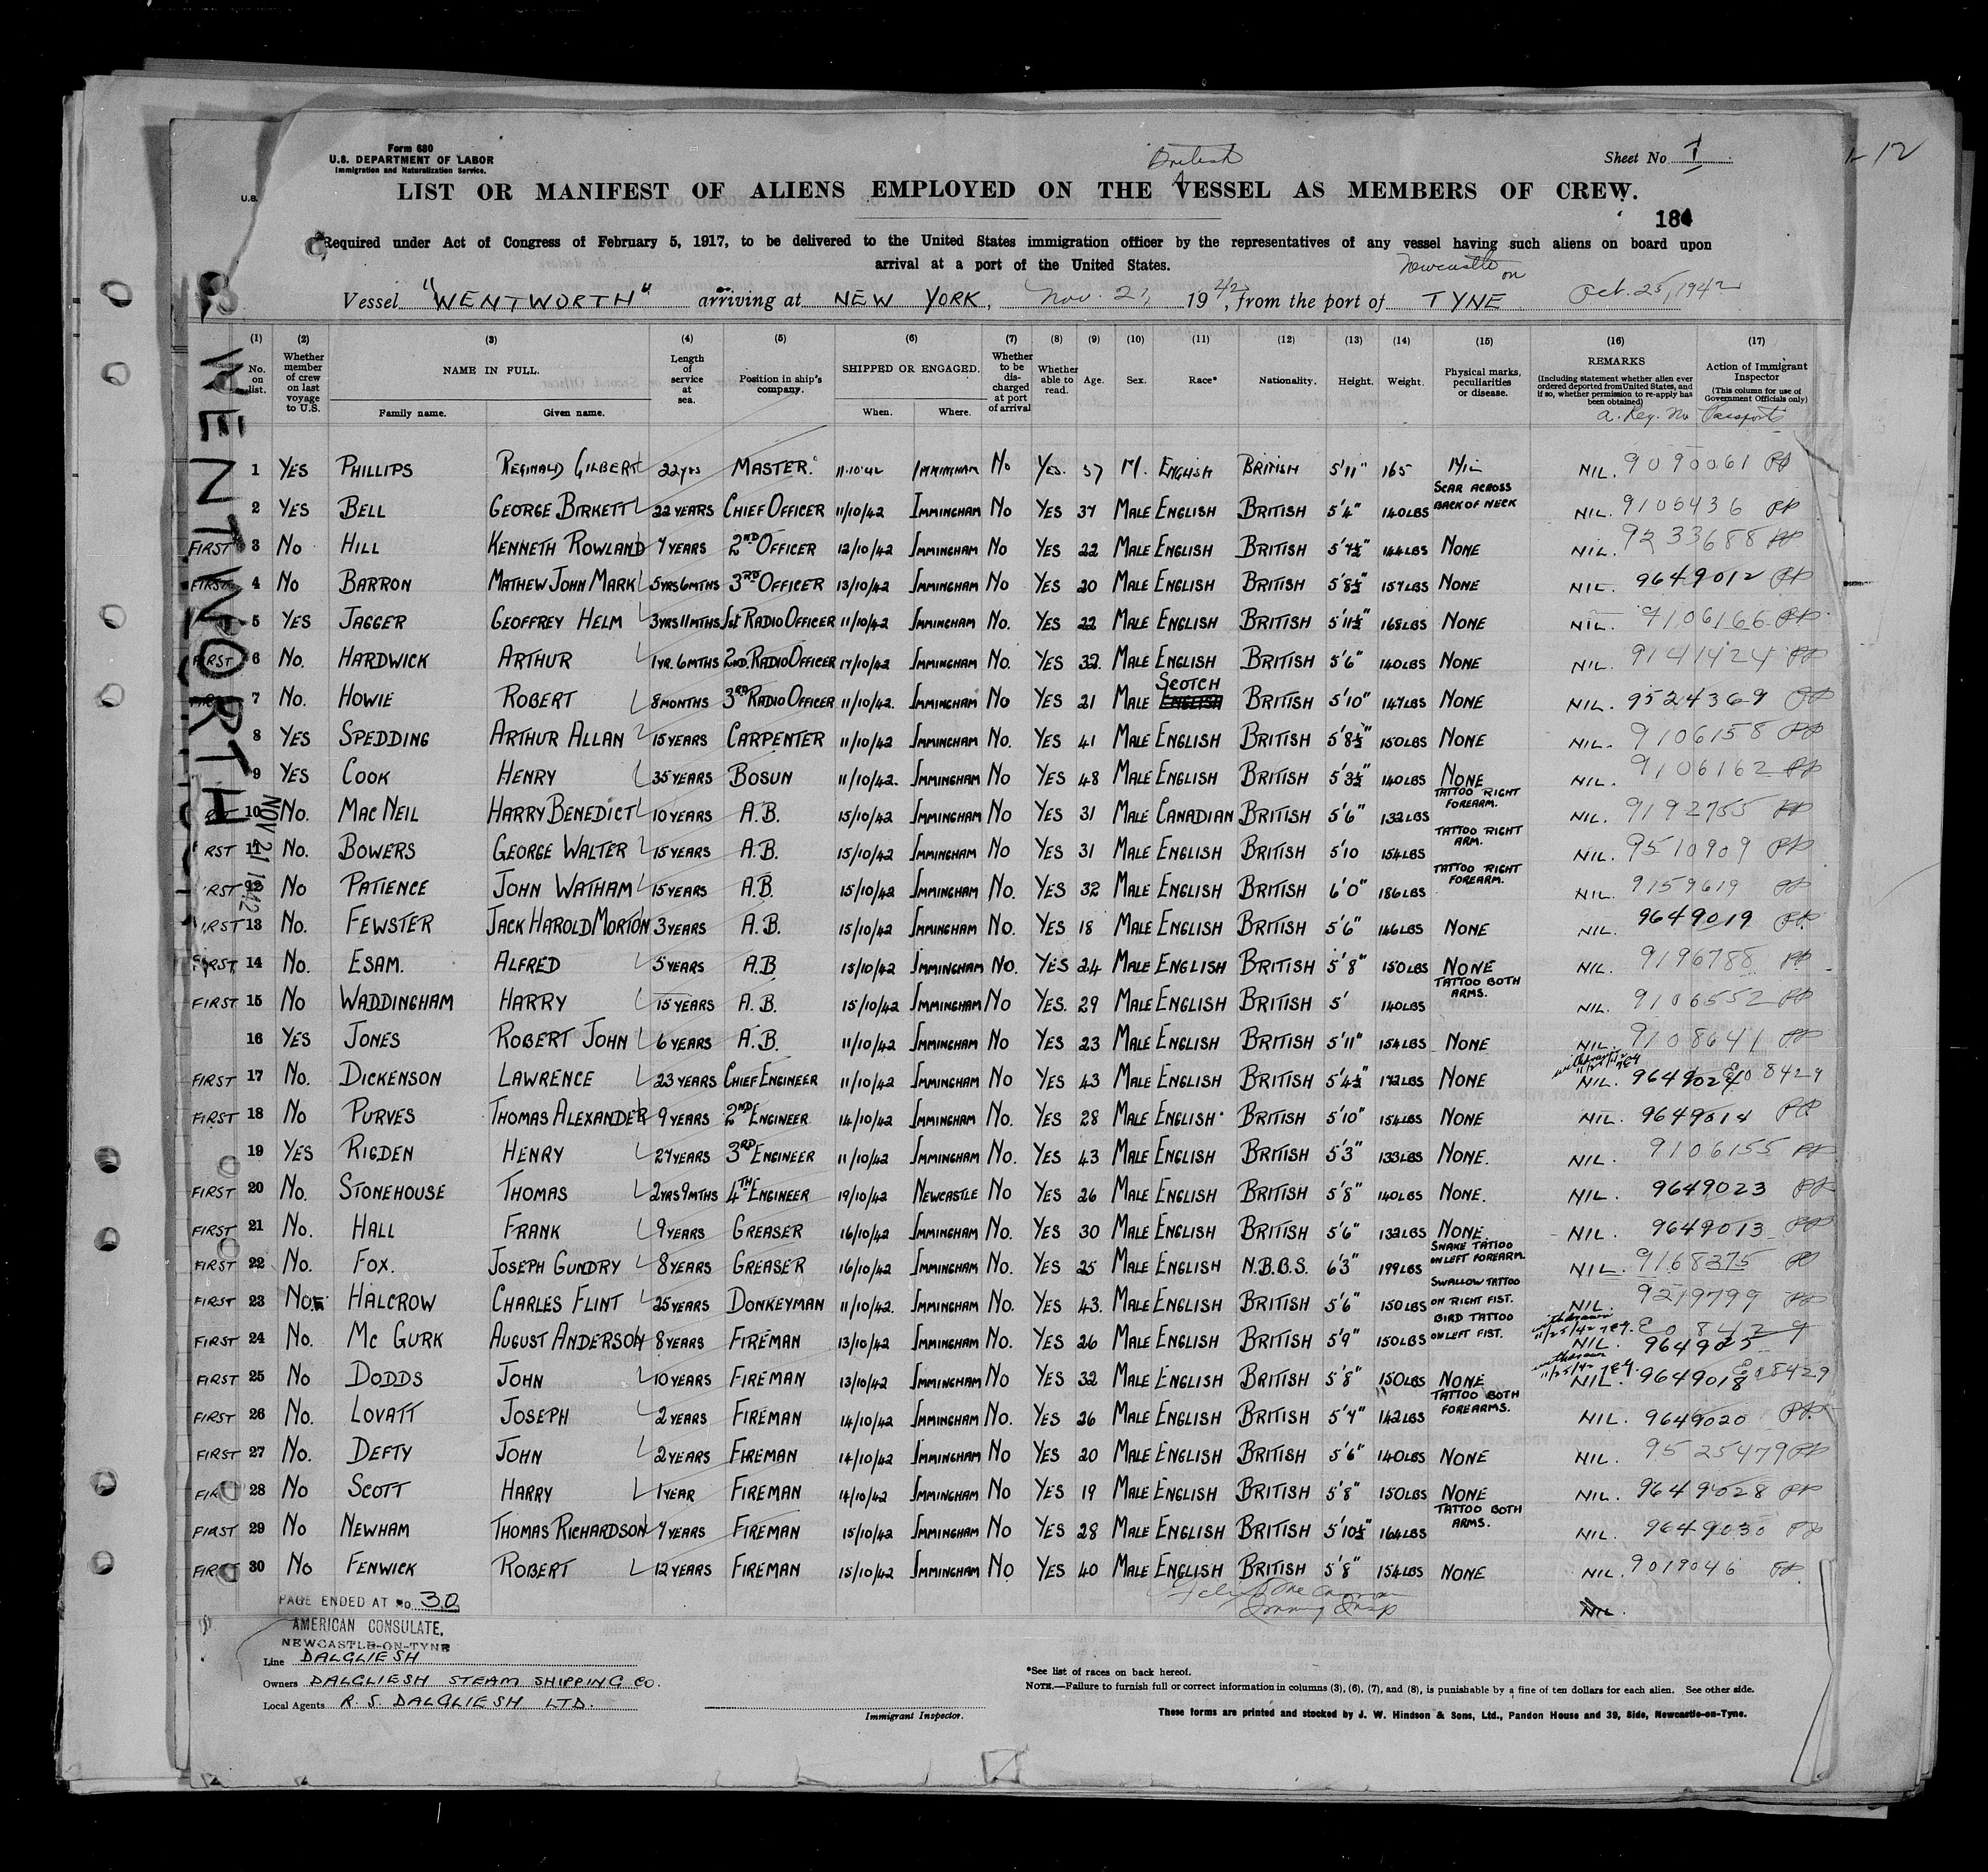 Form 680
U.S. DEPARTMENT OF LABOR
Immigration and Naturalization Service.
Sheet No 1
1-12
U.S.
British
LIST OR MANIFEST OF ALIENS EMPLOYED ON THE VESSEL AS MEMBERS OF CREW.
184
Required under Act of Congress of February 5, 1917, to be delivered to the United States immigration officer by the representatives of any vessel having such aliens on board upon
arrival at a port of the United States.
Newcastle on
Vessel "WENTWORTH" arriving at NEW YORK, Nov. 21, 1942, from the port of TYNE Oct. 25, 1942
(1) (2) (3) (4) (5) (6) (7) (8) (9) (10) (11) (12) (13) (14) (15) (16) (17)
No. on list. Whether member of crew on last voyage to U.S. NAME IN FULL. Family name. Given name. Length of service at sea. Position in ship's company. SHIPPED OR ENGAGED. When. Where. Whether to be discharged at port of arrival Whether able to read. Age. Sex. Race* Nationality. Height. Weight. Physical marks, peculiarities or disease. REMARKS (Including statement whether alien ever ordered deported from United States, and if so, whether permission to re-apply has been obtained) Action of Immigrant Inspector (This column for use of Government Officials only)
a. Reg. No Passport
WENTWORTH
NOV 21 1942
1 YES PHILLIPS REGINALD GILBERT 22 yrs MASTER. 11·10·42 IMMINGHAM No Yes. 37 M. ENGLISH BRITISH 5'11" 165 NIL NIL. 9090061 PP
2 YES BELL GEORGE BIRKETT 22 YEARS CHIEF OFFICER 11/10/42 IMMINGHAM No YES 37 MALE ENGLISH BRITISH 5'4" 140LBS SCAR ACROSS BACK OF NECK NIL. 9105436 PP
FIRST 3 No HILL KENNETH ROWLAND 7 YEARS 2ND OFFICER 12/10/42 IMMINGHAM No YES 22 MALE ENGLISH BRITISH 5'7½" 144LBS NONE NIL. 9233688 PP
FIRST 4 No BARRON MATHEW JOHN MARK 5YRS 6MTHS 3RD OFFICER 13/10/42 IMMINGHAM No YES 20 MALE ENGLISH BRITISH 5'8½" 157LBS NONE NIL. 9649012 PP
5 YES JAGGER GEOFFREY HELM 3YRS 11MTHS 1st RADIO OFFICER 11/10/42 IMMINGHAM No. YES 22 MALE ENGLISH BRITISH 5'11½" 168LBS NONE NIL. 9106166 PP
FIRST 6 No. HARDWICK ARTHUR 1YR. 6MTHS 2ND. RADIO OFFICER 17/10/42 IMMINGHAM No. YES 32. MALE ENGLISH BRITISH 5'6" 140LBS NONE NIL. 9141424 PP
FIRST 7 No. HOWIE ROBERT 8 MONTHS 3RD RADIO OFFICER 11/10/42. IMMINGHAM No YES 21 MALE SCOTCH ENGLISH BRITISH 5'10" 147LBS NONE NIL. 9524369 PP
8 YES SPEDDING ARTHUR ALLAN 15 YEARS CARPENTER 11/10/42 IMMINGHAM No. YES 41 MALE ENGLISH BRITISH 5'8½" 150LBS NONE NIL. 9106158 PP
9 YES COOK HENRY 35 YEARS BOSUN 11/10/42. IMMINGHAM No YES 48 MALE ENGLISH BRITISH 5'3½" 140LBS NONE NIL. 9106162 PP
10 No. MAC NEIL HARRY BENEDICT 10 YEARS A.B. 15/10/42 IMMINGHAM No YES 31 MALE CANADIAN BRITISH 5'6" 132LBS TATTOO RIGHT FOREARM. NIL. 9192755 PP
FIRST 11 No. BOWERS GEORGE WALTER 15 YEARS A.B. 15/10/42 IMMINGHAM No YES 31 MALE ENGLISH BRITISH 5'10 154LBS TATTOO RIGHT ARM. NIL. 9510909 PP
FIRST 12 No PATIENCE JOHN WATHAM 15 YEARS A.B. 15/10/42 IMMINGHAM No. YES 32 MALE ENGLISH BRITISH 6'0" 186LBS TATTOO RIGHT FOREARM. NIL. 9159619 PP
FIRST 13 No. FEWSTER JACK HAROLD MORTON 3 YEARS A.B. 15/10/42 IMMINGHAM No. YES 18 MALE ENGLISH BRITISH 5'6" 146LBS NONE NIL. 9649019 PP.
FIRST 14 No. ESAM. ALFRED 5 YEARS A.B 15/10/42 IMMINGHAM No. YES 24 MALE ENGLISH BRITISH 5'8" 150LBS NONE NIL. 9196788 PP
FIRST 15 No WADDINGHAM HARRY 15 YEARS A.B. 15/10/42 IMMINGHAM No YES. 29 MALE ENGLISH BRITISH 5' 140LBS TATTOO BOTH ARMS. NIL. 9106552 PP
16 YES JONES ROBERT JOHN 6 YEARS A.B. 11/10/42 IMMINGHAM No YES 23 MALE ENGLISH BRITISH 5'11" 154LBS NONE NIL. 9108641 PP
FIRST 17 No. DICKENSON LAWRENCE 23 YEARS CHIEF ENGINEER 11/10/42 IMMINGHAM No YES 43 MALE ENGLISH BRITISH 5'4½" 172LBS NONE NIL. 9649024 E08429
FIRST 18 No PURVES THOMAS ALEXANDER 9 YEARS 2ND ENGINEER 14/10/42 IMMINGHAM No. YES 28 MALE ENGLISH BRITISH 5'10" 154LBS NONE NIL. 9649014 PP
19 YES RIGDEN HENRY 27 YEARS 3RD ENGINEER 11/10/42 IMMINGHAM No. YES 43 MALE ENGLISH BRITISH 5'3" 133LBS NONE. NIL. 9106155 PP
FIRST 20 No. STONEHOUSE THOMAS 2YRS 9MTHS 4TH ENGINEER 19/10/42 NEWCASTLE No YES 26 MALE ENGLISH BRITISH 5'8" 140LBS NONE. NIL. 9649023 PP
FIRST 21 No. HALL FRANK 9 YEARS GREASER 16/10/42 IMMINGHAM No. YES 30 MALE ENGLISH BRITISH 5'6" 132LBS NONE. NIL. 9649013 PP
FIRST 22 No. FOX. JOSEPH GUNDRY 8 YEARS GREASER 16/10/42 IMMINGHAM No. YES 25 MALE ENGLISH N.B.B.S. 6'3" 199LBS SNAKE TATTOO ON LEFT FOREARM. NIL. 9168375 PP
FIRST 23 No HALCROW CHARLES FLINT 25 YEARS DONKEYMAN 11/10/42. IMMINGHAM No. YES 43. MALE ENGLISH BRITISH 5'6" 150LBS SWALLOW TATTOO ON RIGHT FIST. NIL. 9219799 PP
FIRST 24 No. MC GURK AUGUST ANDERSON 8 YEARS FIREMAN 13/10/42 IMMINGHAM No. YES 26 MALE ENGLISH BRITISH 5'9" 150LBS BIRD TATTOO ON LEFT FIST. withdrawn 11/25/42 NIL. E08429
FIRST 25 No DODDS JOHN 10 YEARS FIREMAN 13/10/42 IMMINGHAM No YES 32 MALE ENGLISH BRITISH 5'8" 150LBS NONE withdrawn 11/25/42 NIL. 9649018 E08429
FIRST 26 No. LOVATT JOSEPH 2 YEARS FIREMAN 14/10/42 IMMINGHAM No. YES 26 MALE ENGLISH BRITISH 5'4" 142LBS TATTOO BOTH FOREARMS. NIL. 9649020 PP.
FIRST 27 No. DEFTY JOHN 2 YEARS FIREMAN 14/10/42 IMMINGHAM No YES 20 MALE ENGLISH BRITISH 5'6" 140LBS NONE NIL. 9525479 PP
FIRST 28 No SCOTT HARRY 1 YEAR FIREMAN 14/10/42 IMMINGHAM No YES 19 MALE ENGLISH BRITISH 5'8" 150LBS NONE NIL. 9649028 PP
FIRST 29 No NEWHAM THOMAS RICHARDSON 7 YEARS FIREMAN 15/10/42 IMMINGHAM No YES 28 MALE ENGLISH BRITISH 5'10½" 164LBS TATTOO BOTH ARMS. NIL. 9649030 PP
FIRST 30 No FENWICK ROBERT 12 YEARS FIREMAN 15/10/42 IMMINGHAM No YES 40 MALE ENGLISH BRITISH 5'8" 154LBS NONE NIL. 9019046 PP
PAGE ENDED AT No 30
NIL.
AMERICAN CONSULATE,
NEWCASTLE-ON-TYNE
Line DALGLIESH
Owners DALGLIESH STEAM SHIPPING CO.
Local Agents R. S. DALGLIESH LTD.
Immigrant Inspector.
*See list of races on back hereof.
NOTE.—Failure to furnish full or correct information in columns (3), (6), (7), and (8), is punishable by a fine of ten dollars for each alien. See other side.
These forms are printed and stocked by J. W. Hindson & Sons, Ltd., Pandon House and 39, Side, Newcastle-on-Tyne.